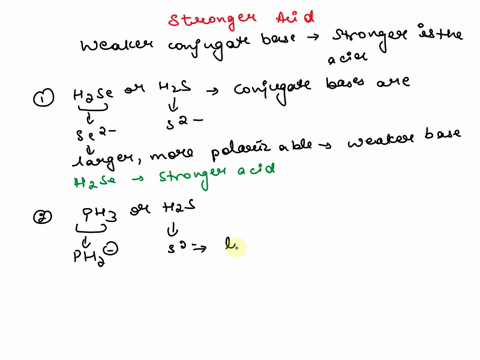 Stronger Acid
Weaker conjugate base → stronger is the
acid
① H2Se or H2S → conjugate bases are
Se2- S2-
larger, more polarizable → weaker base
H2Se → stronger acid
② PH3 or H2S
PH2⊖ S2- → l